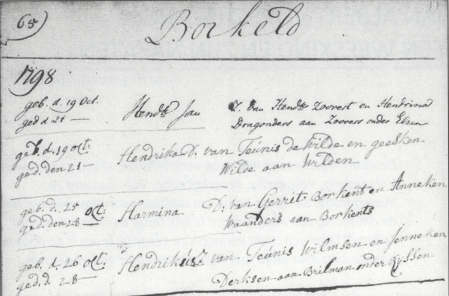 65
Borkeld
1798
geb. d. 19 Oct. Hendk Jan Z. van Hendk Zoerest en Hendrina
ged d 21 — Dragonders aan Zoevers onder
geb. d. 19 Oct. Hendrika D. van Teunis de Wilde en geesken
ged. den 21 — Wilde aan Wilden
geb. d. 25 Oct. Harmina D. van Gerrit Borkent en Anneken
ged. den 28 Waanders aan Borkents
geb. d. 26 Oct. Hendrikus Z. van Teunis Wilmsen en Jenneken
ged. d 28 — Derksen aan Brilman onder Ryssen